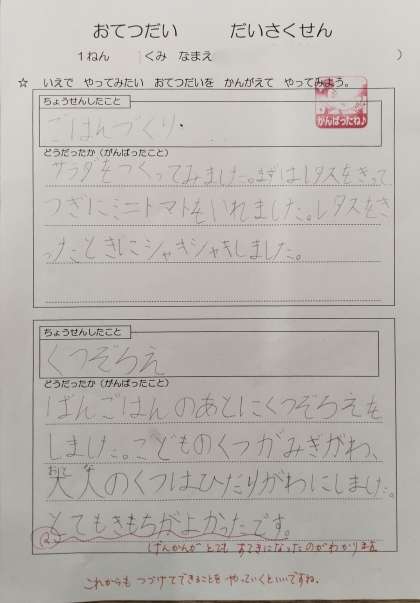 おてつだい　だいさくせん
1ねん　くみ　なまえ　)
☆ いえで やってみたい おてつだいを かんがえて やってみよう。
ちょうせんしたこと
ごはんづくり
がんばったね♪
どうだったか(がんばったこと)
サラダをつくってみました。まずはレタスをきって
つぎにミニトマトをいれました。レタスをき
ったときにシャキシャキしました。
ちょうせんしたこと
くつぞろえ
どうだったか(がんばったこと)
ばんごはんのあとにくつぞろえを
しました。こどものくつがみぎがわ、
おとな
大人のくつはひだりがわにしました。
とてもきもちがよかったです。
げんかんが とても すてきになったのがわかります
これからも つづけてできることを やっていくといいですね。